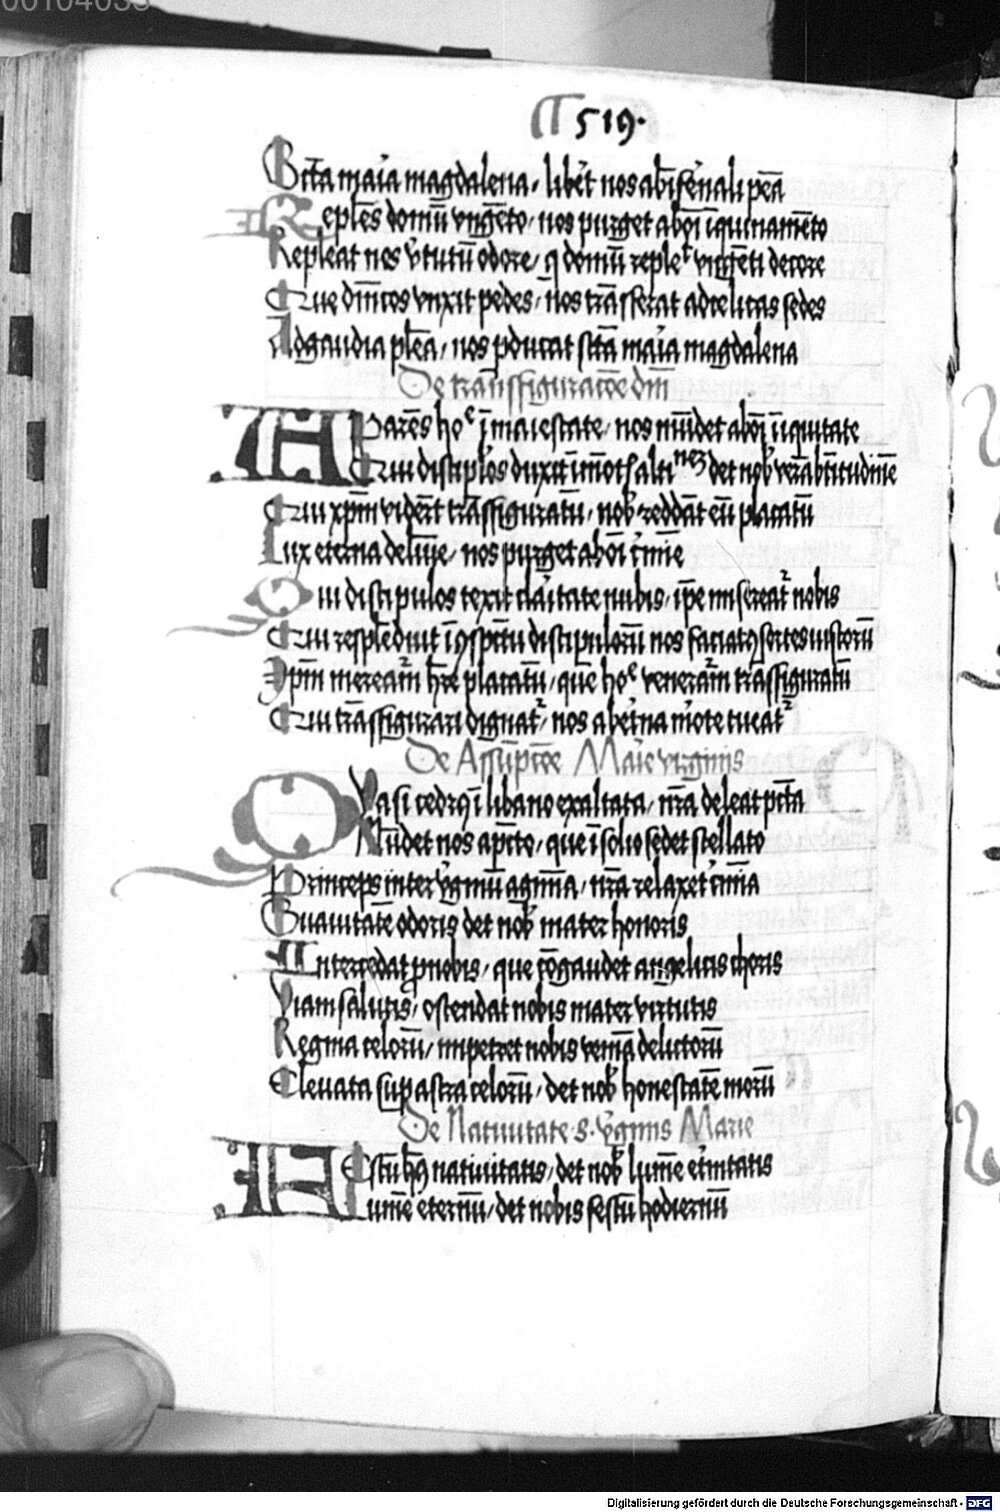 00104033
519.
Scta maria magdalena, liberet nos ab infernali pena
Replens domū vngēto, nos purget ab oī īquinamēto
Repleat nos v̓tutū odore, q domū replet vngēti decore
Que dnicos vnxit pedes, nos trāsferat ad celicas sedes
Ad gaudia plēa, nos pducat scta maria magdalena
De transfiguracōe dni
Aparēs hoc ī maiestate, nos mūdet ab oī īiquitate
Qui discip̄los duxit ī mōtē det nob verā btitudinē
Qui xpm viderūt trāsfiguratū, nob reddāt eū placatū
Lux eterna de lumīe, nos purget ab oī c̓mīe
Qui discipulos texit claritate nubis, ip̄e misereat̓ nobis
Qui resplēduit ī 9spctu discipulorū nos faciat 9sortes iustorū
Xpm mereām̓ h̓re placatū, quē hoc venerām̓ trāsfiguratū
Qui trāsfigurari dignat̓, nos ab et̓na morte tueat̓
De Assūptōe Marie virginis
Quasi cedr9 ī libano exaltata, nr̄a deleat pctā
Mūdet nos a pctō, que ī solio sedet stellato
Princeps inter v̓ginū agmīa, nr̄a relaxet c̓mīa
Suauitatē odoris det nob mater honoris
Intercedat p nobis, que cōgaudet angelicis choris
Viam salutis, ostendat nobis mater virtutis
Regina celorū, impetret nobis veniā delictorū
Eleuata sup astra celorū, det nob honestatē morū
De Natiuitate s. v̓ginis Marie
Festū h9 natiuitatis, det nob lumē et̓nitatis
Lumē eternū, det nobis festū hodiernū
Digitalisierung gefördert durch die Deutsche Forschungsgemeinschaft - DFG